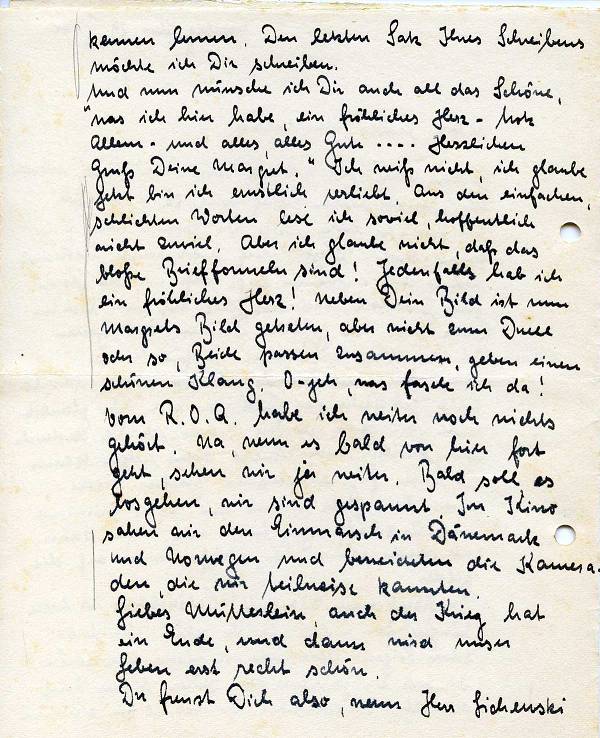 kennen lernen. Den letzten Satz Ihres Schreibens
möchte ich Dir schreiben.
Und nun wünsche ich Dir auch all das Schöne,
"was ich hier habe, ein fröhliches Herz - trotz
Allem - und alles, alles Gute .... Herzlichen
Gruß Deine Margret." Ich weiß nicht, ich glaube
jetzt bin ich ernstlich verliebt. Aus den einfachen,
schlichten Worten lese ich soviel, hoffentlich
nicht zuviel. Aber ich glaube nicht, daß das
bloße Briefformeln sind! Jedenfalls hab ich
ein fröhliches Herz! Neben Dein Bild ist nun
Margrets Bild getreten, aber nicht zum Duell
oder so, Beide passen zusammen, geben einen
schönen Klang. O-jeh, was fasele ich da!
Vom R.O.A. habe ich weiter noch nichts
gehört. Na, wenn es bald von hier fort
geht, sehen wir ja weiter. Bald soll es
losgehen, wir sind gespannt. Im Kino
sahen wir den Einmarsch in Dänemark
und Norwegen und beneideten die Kamera-
den, die wir teilweise kannten.
Liebes Mütterlein, auch der Krieg hat
ein Ende, und dann wird unser
Leben erst recht schön.
Du freust Dich also, wenn Herr